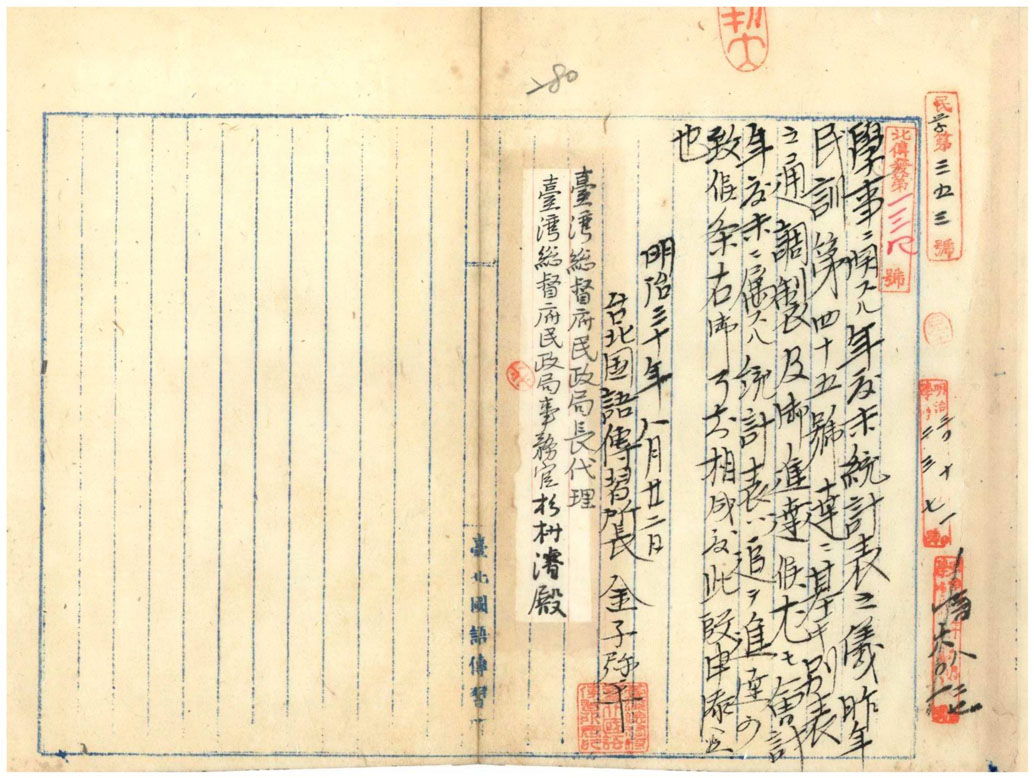 民学第三五三號
北傳發第一三八號
學事ニ関スル年度末統計表之儀昨年
民訓第四十五號御達ニ基キ別表
之通調製及御進達候尤モ會計
年度末ニ属スル統計表ハ追テ進達可
致候条右御了知相成度此段申添候
也
明治三十年八月廿二日
台北國語傳習所長 金子
臺灣総督府民政局長代理
臺灣総督府民政局事務官杉村濬殿
臺北國語傳習
280